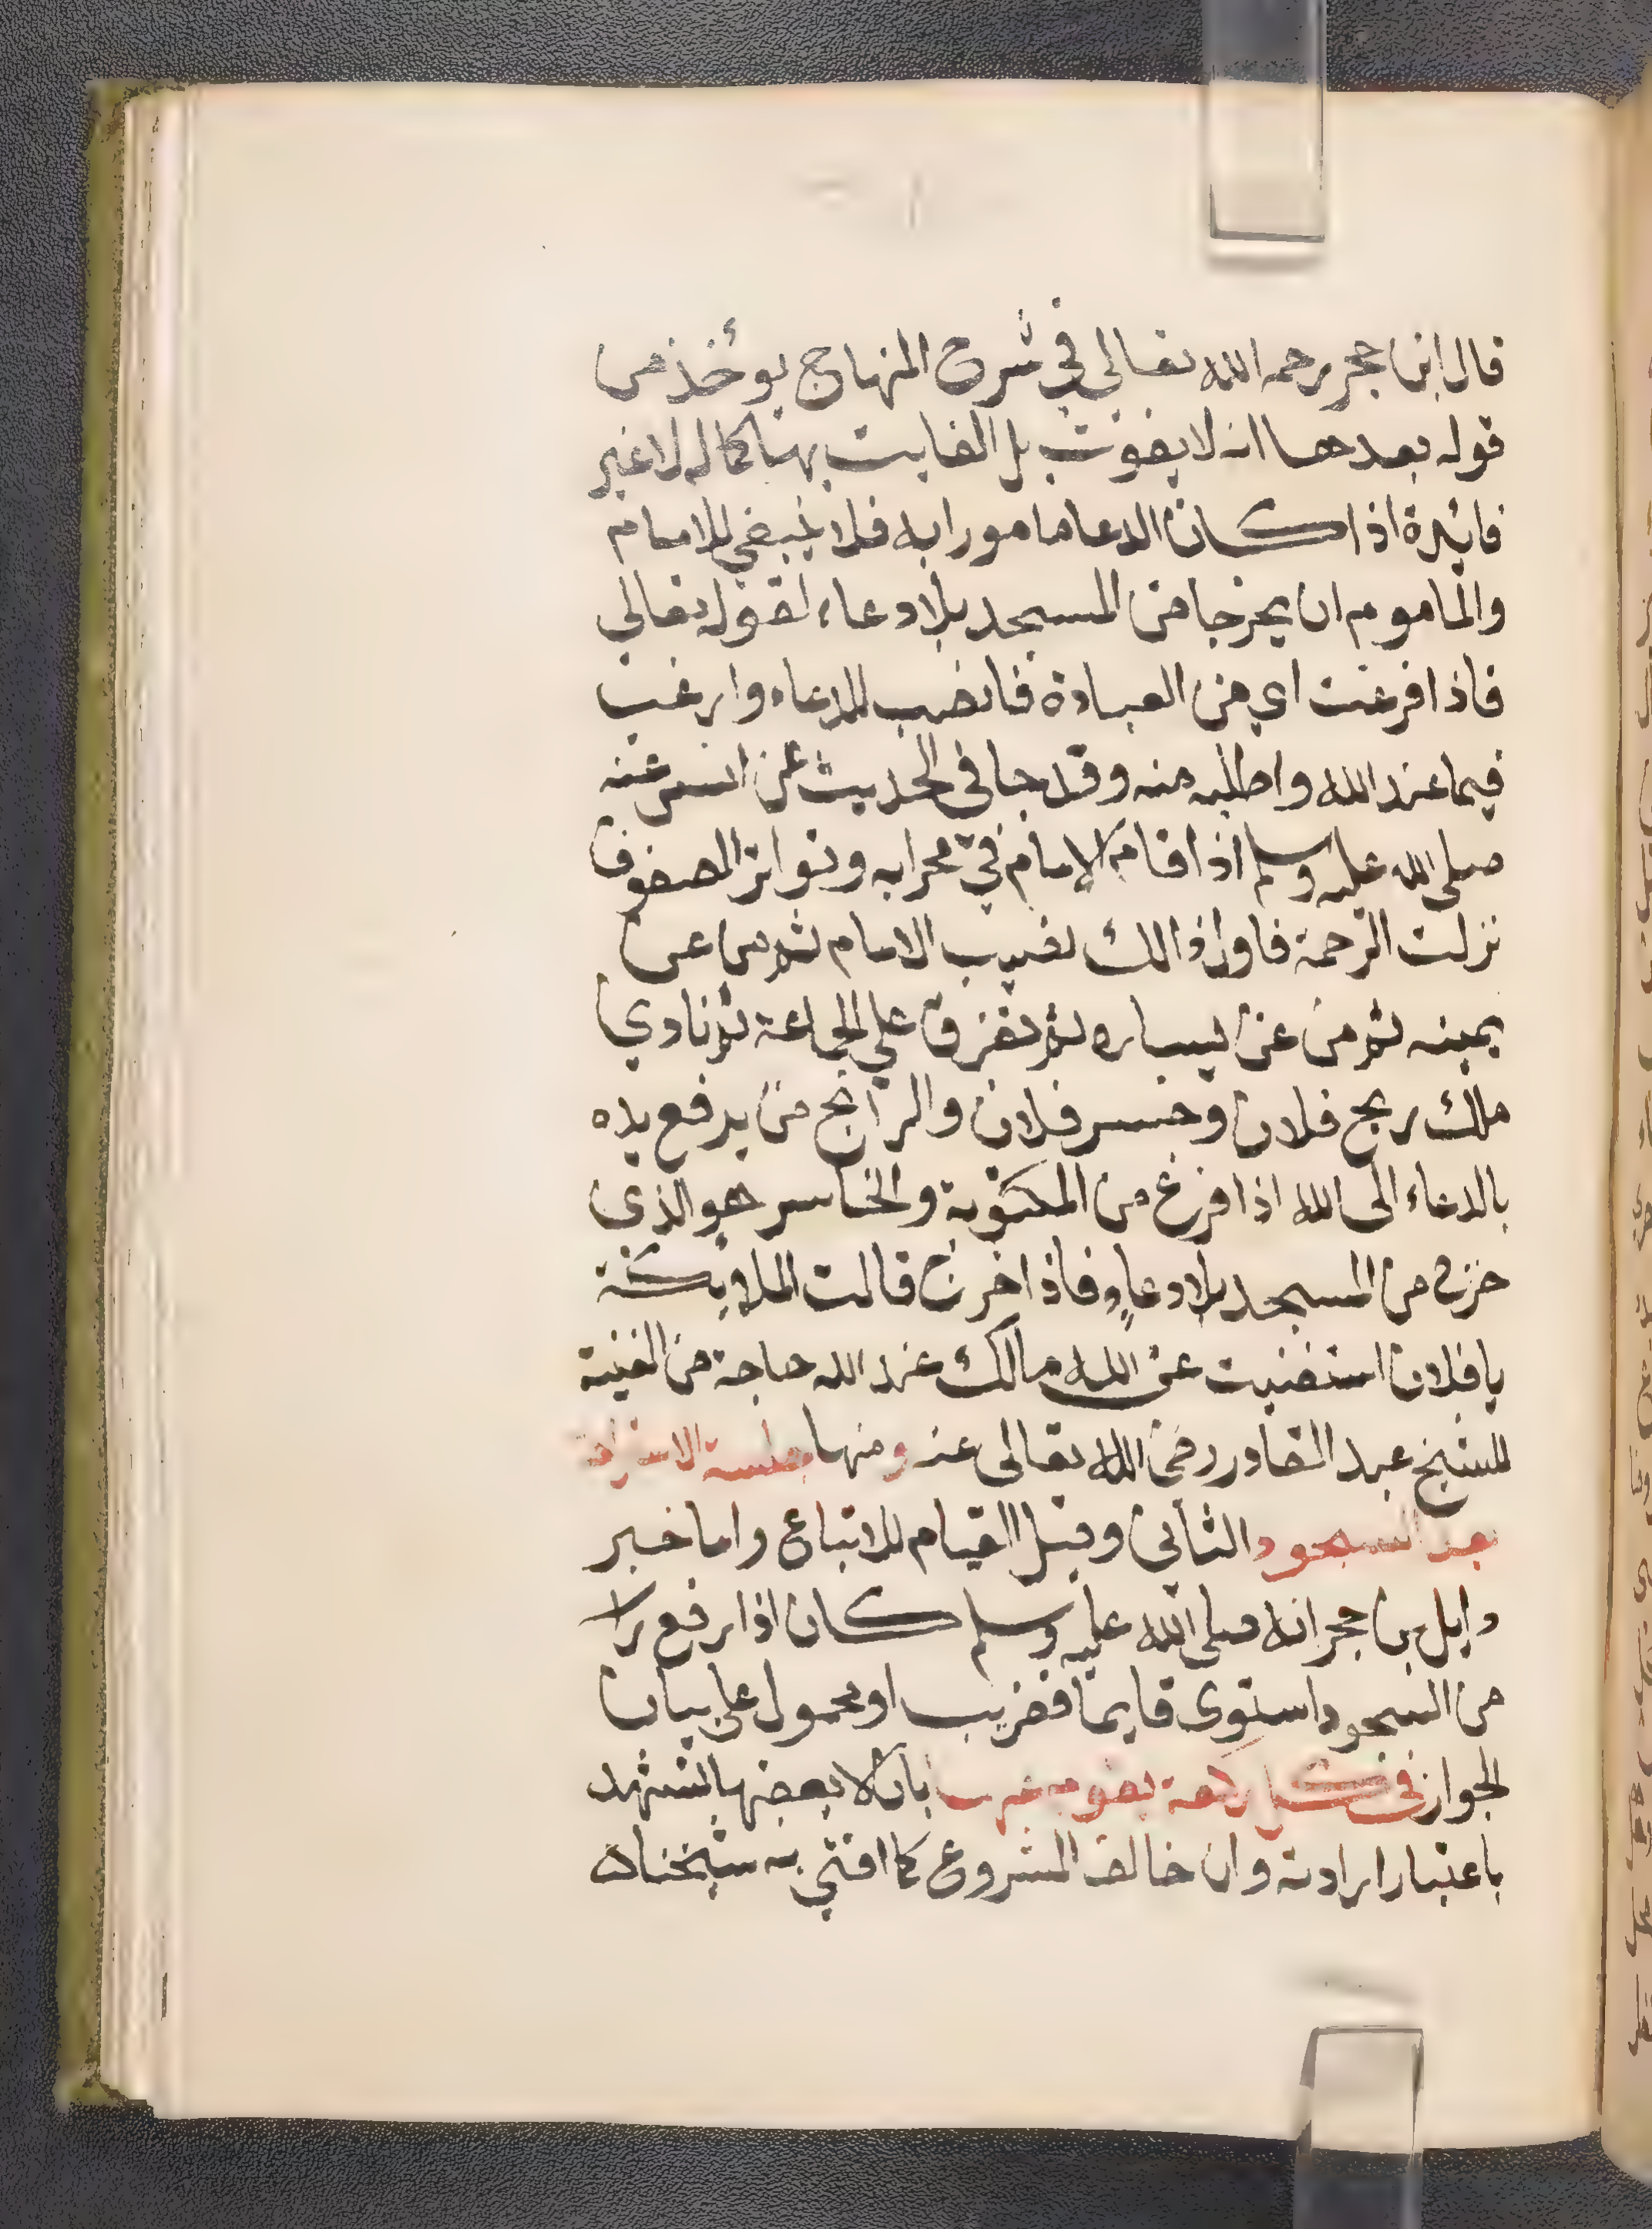 قال ابن حجر رحمه الله تعالى في شرح المنهاج يؤخذ من
قوله بعدها انه لا يفوت بل الفايت بهما كماله لا غير
فايدة اذا كان الدعا مامورا به فلا ينبغي للامام
والماموم ان يخرجا من المسجد بلا دعاء لقوله تعالي
فاذا فرغت اي من العبادة فانصب للدعاء وارغب
فيما عند الله واطلبه منه وقد جا في الحديث عن انس عنه
صلى الله عليه وسلم اذا قام الامام في محرابه وتواتر الصفوف
نزلت الرحمة فاول ذالك نصيب الامام ثم من عن
يمينه ثم من عن يساره ثم تفرق علي الجماعة ثم نادي
ملك ربح فلان وخسر فلان والرابح من يرفع يده
بالدعاء الى الله اذا فرغ من المكتوبة والخاسر هو الذي
خرج من المسجد بلا دعاء فاذا خرج قالت الملايكة
يا فلان استغنيت عن الله مالك عند الله حاجة من الغنية
للشيخ عبد القادر رضى الله تعالى عنه ومنها جلسة الاستراحة
بعد السجود الثانى وقبل القيام للاتباع واما خبر
وايل بن حجر انه صلى الله عليه وسلم كان اذا رفع را
من السجود استوى قايما فغريب او محمول على بيان
الجواز فى كل ركعة يقوم عنها بان لا يعقبها تشهد
باعتبار ارادته وان خالف المشروع كما افتى به شيخنا